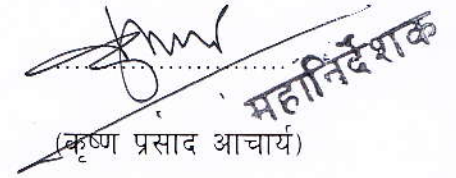 महानिर्देशक
(कृष्ण प्रसाद आचार्य)